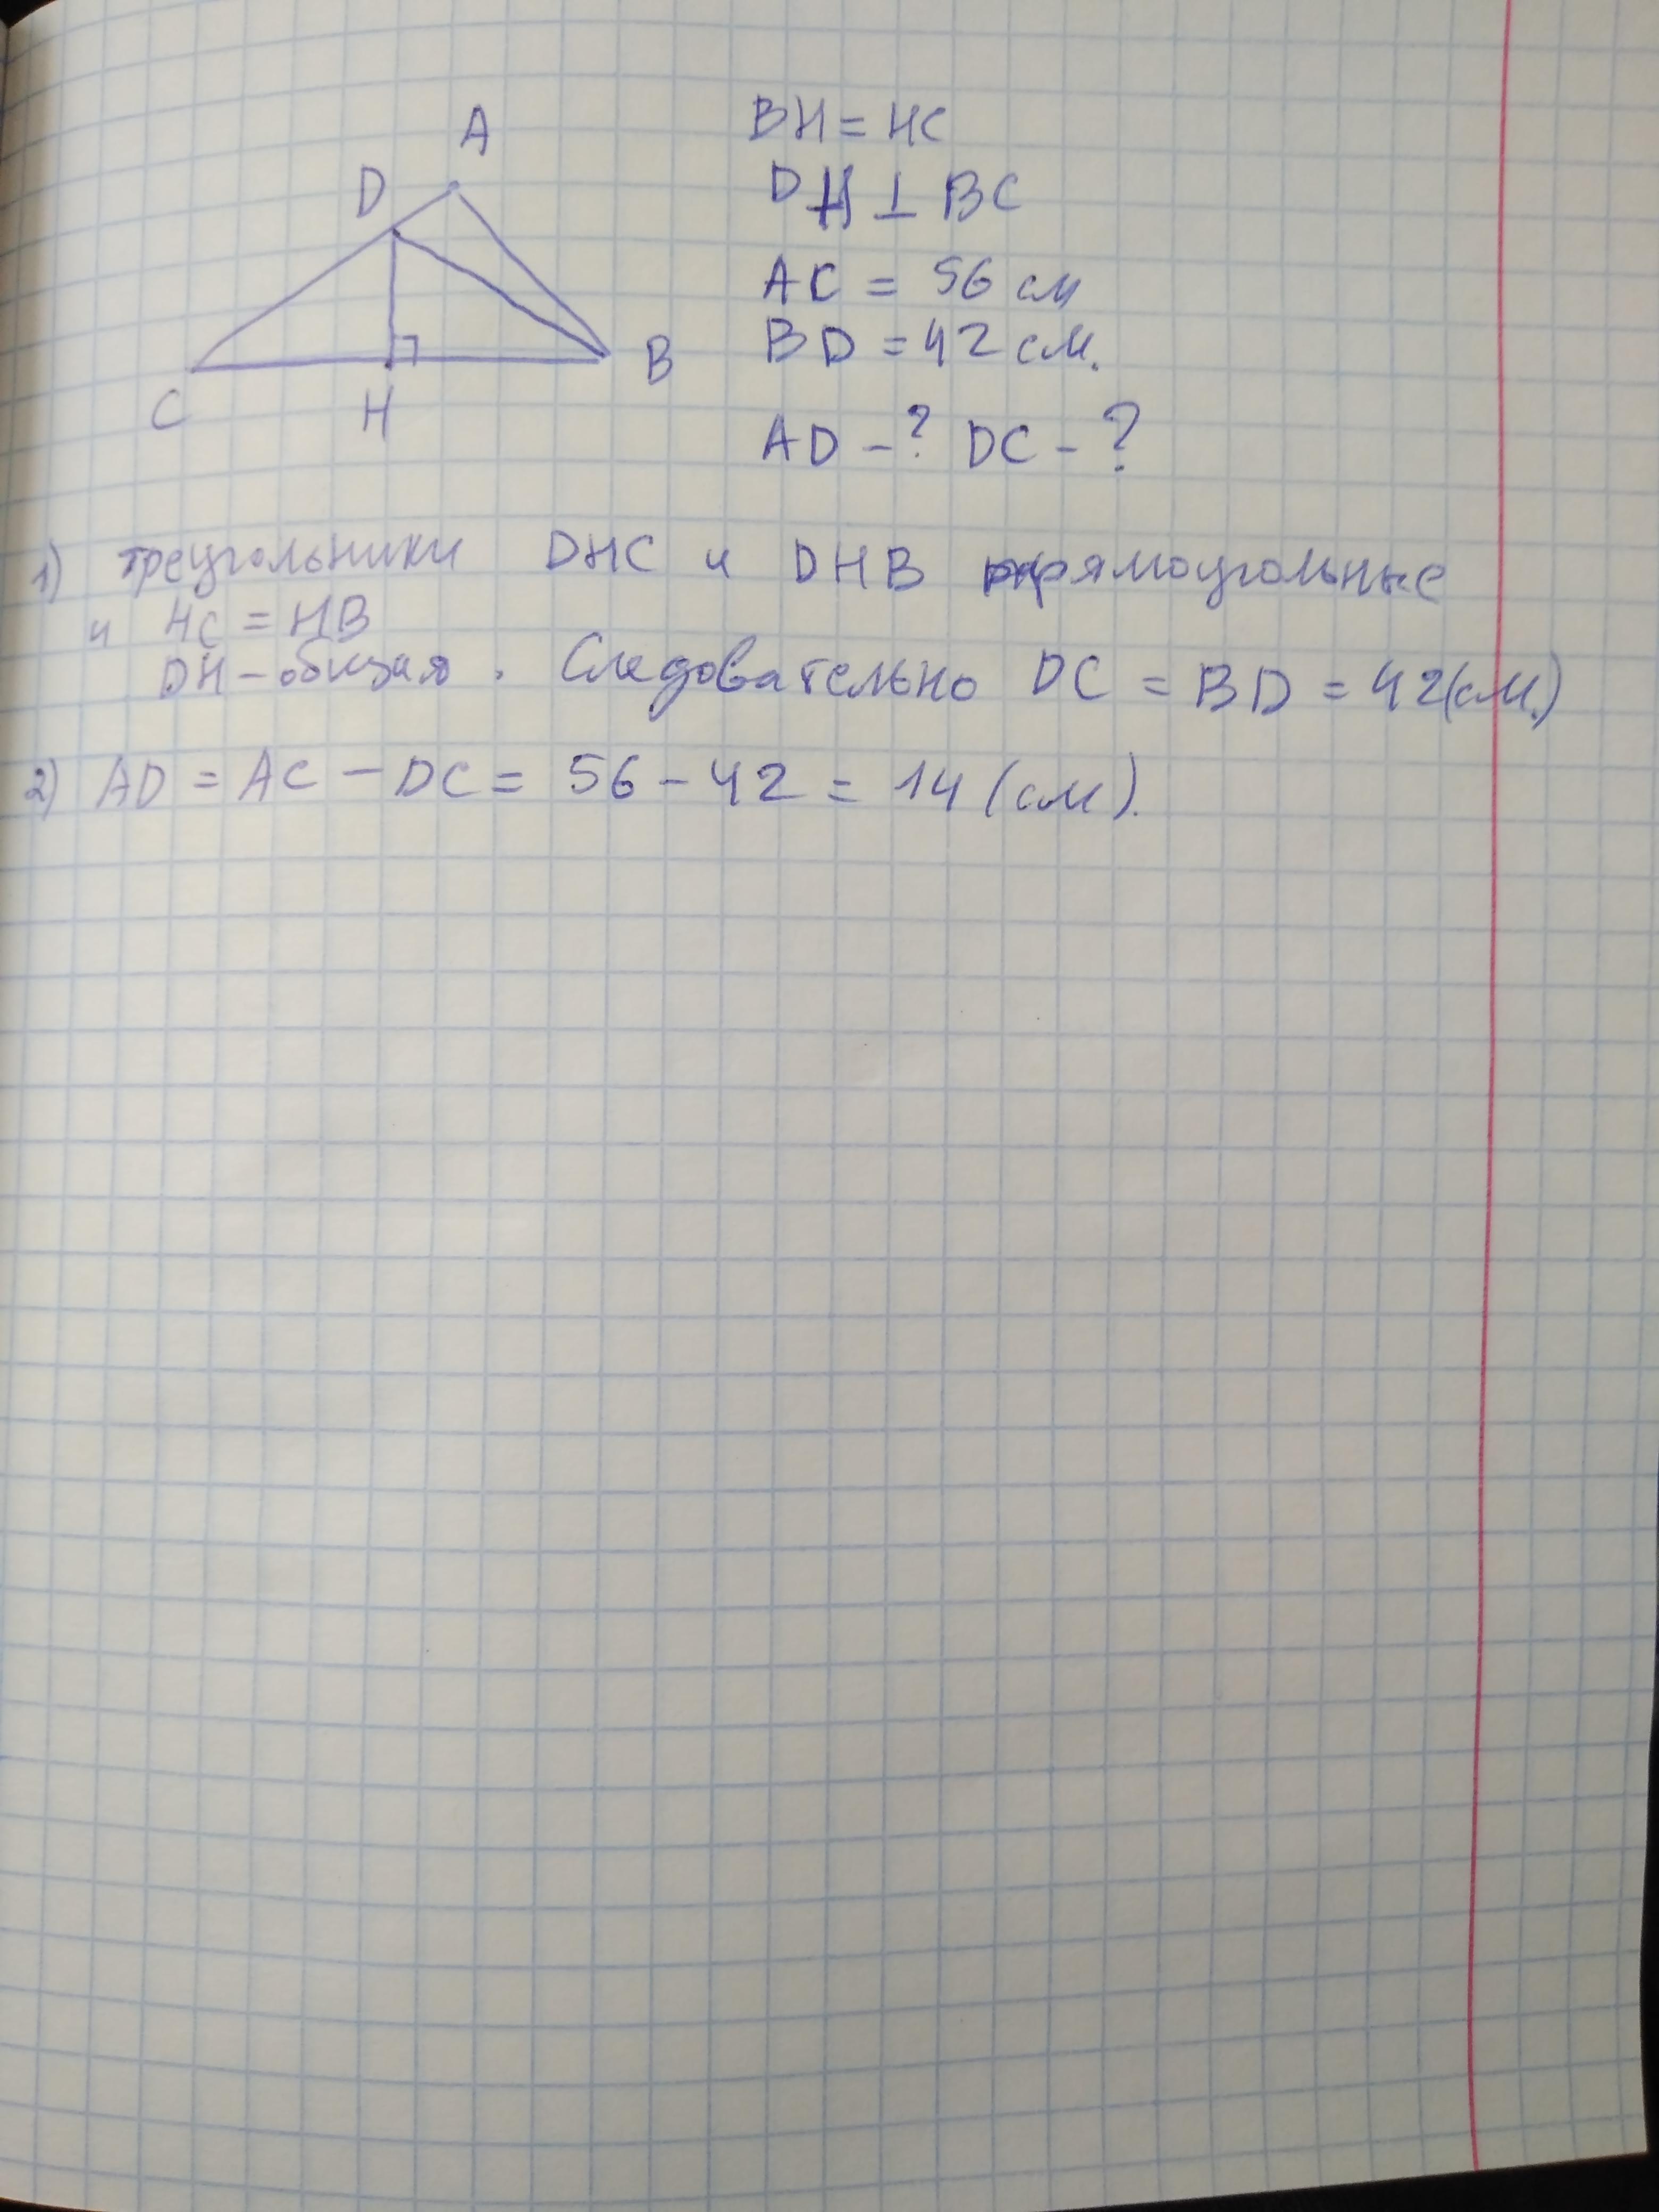 A
D
C
H
B
BH = HC
DH ⊥ BC
AC = 56 см
BD = 42 см.
AD - ? DC - ?
1) треугольники DHC и DHB прямоугольные
и HC = HB
DH - общая. Следовательно DC = BD = 42 (см.)
2) AD = AC - DC = 56 - 42 = 14 (см).